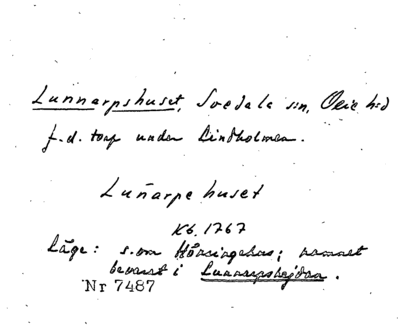 Lunnarpshuset, Svedala sn, Oxie hd
f.d. torp under Lindholmen.
Luñarpe huset
Kb. 1767
Läge: s. om Hönsingehus; namnet
bevarat i Lunnarpshejdan.
Nr 7487